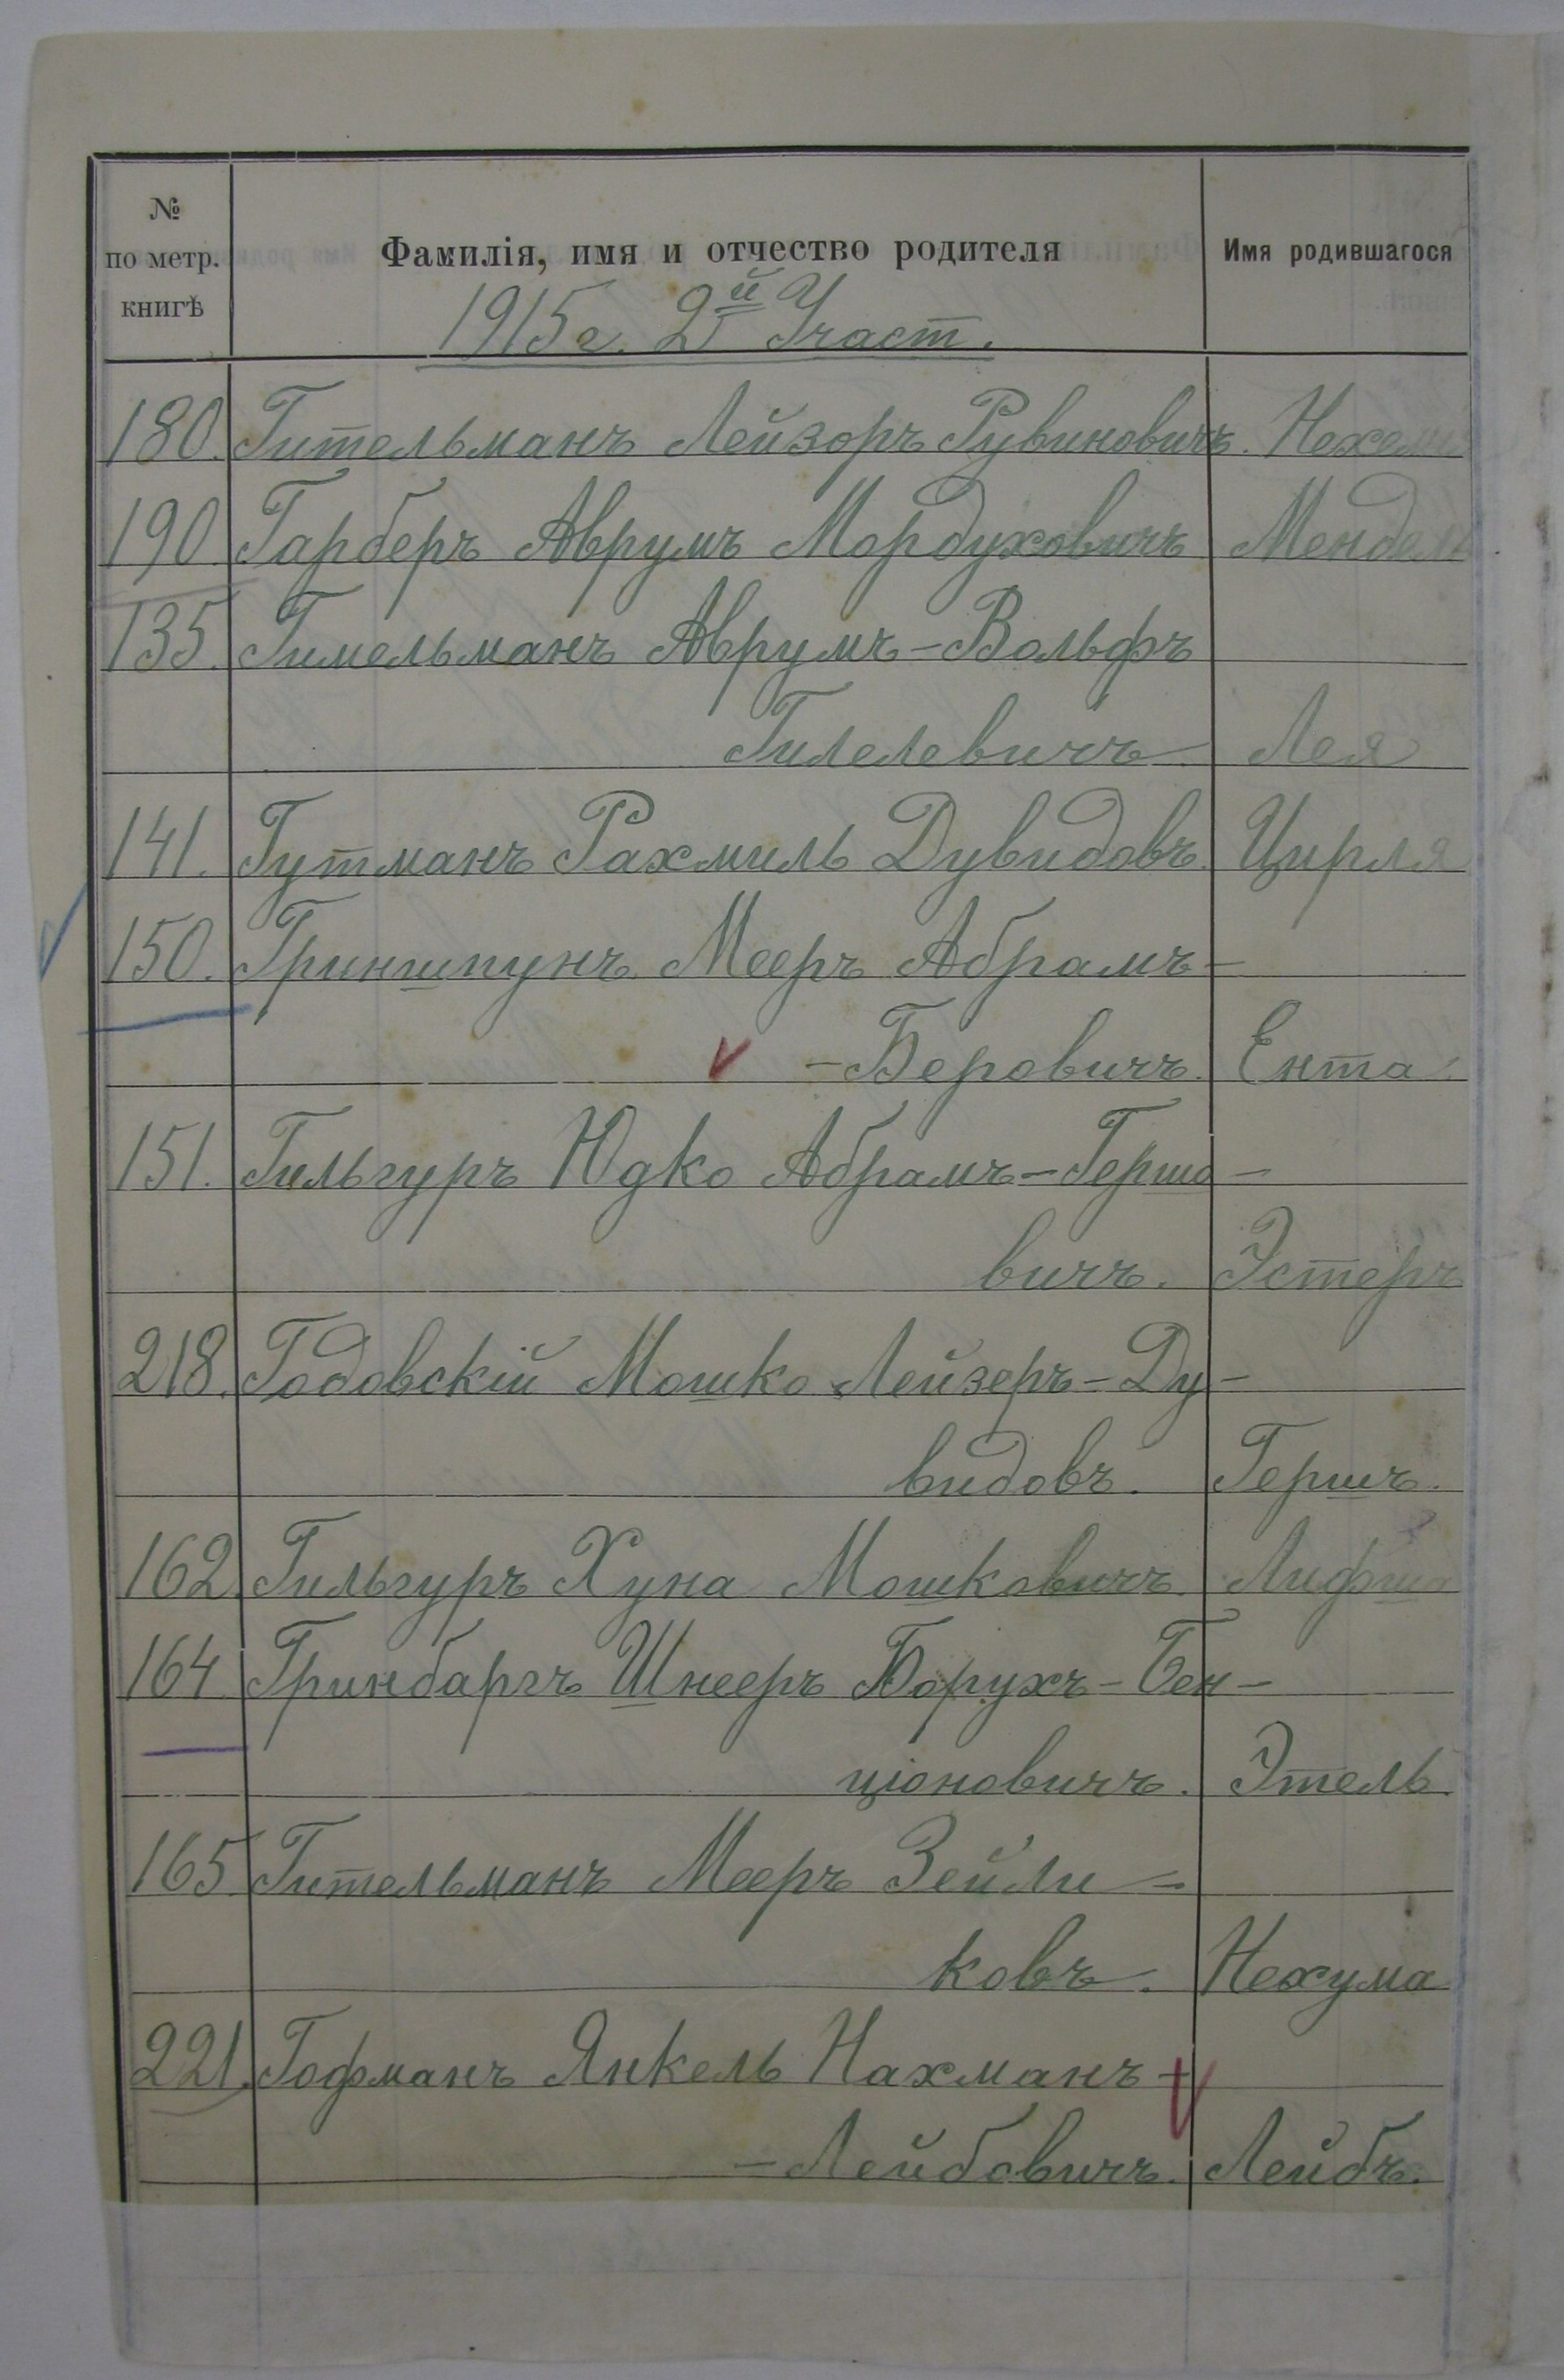 № по метр. книгѣ Фамилія, имя и отчество родителя Имя родившагося
1915 г. 2й Участ.
180. Гительманъ Лейзоръ Рувиновичъ.
190 Гарберъ Аврумъ Мордуховичъ Мендель
135. Гимельманъ Аврумъ-Вольфъ
Гилелевичъ Лея
141. Гутманъ Рахмиль Дувидовъ. Цирля
150. Гриншпунъ Мееръ Абрамъ-
-Беровичъ. Ента
151. Гильгуръ Юдко Абрамъ-Гершо-
вичъ. Эстеръ
218. Годовскій Мошко Лейзеръ-Ду-
видовъ. Гершъ.
162. Гильгуръ Хуна Мошковичъ. Лифша
164 Гринбаргъ Шнееръ Борухъ-Бен-
ціоновичъ. Этель.
165 Гительманъ Мееръ Зейли-
ковъ. Нехума
221. Гофманъ Янкель Нахманъ-
-Лейбовичъ. Лейбъ.